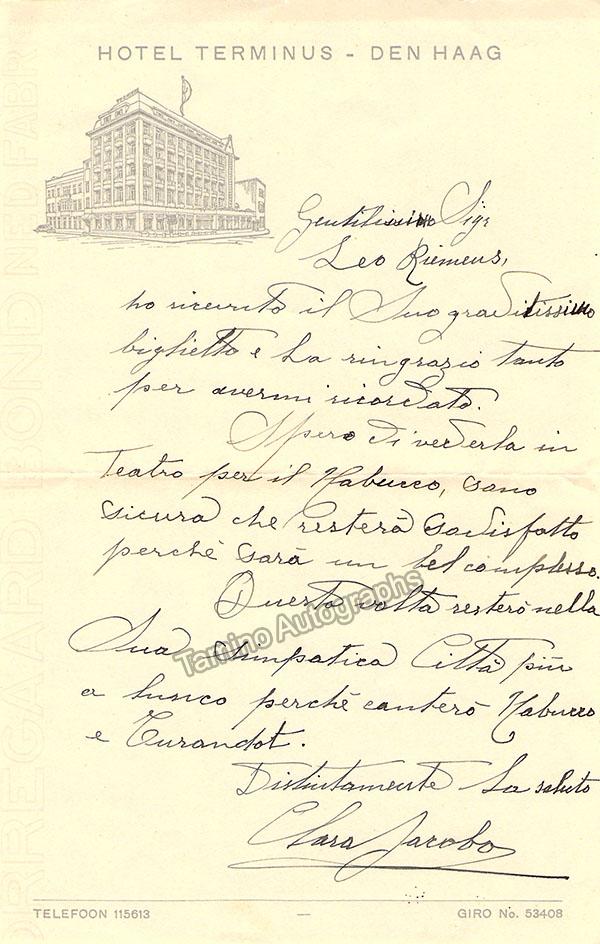 HOTEL TERMINUS - DEN HAAG
Gentilissimo Sigr
Leo Riemens,
ho ricevuto il Suo graditissimo
biglietto e La ringrazio tanto
per avermi ricordato.
Spero di vederla in
Teatro per il Nabucco, sono
sicura che resterà sodisfatto
perchè sarà un bel complesso.
Questa volta resterò nella
Sua simpatica Città più
a lungo perchè canterò Nabucco
e Turandot.
Distintamente La saluto
Clara Jacobo
Tamino Autographs
TELEFOON 115613 — GIRO No. 53408